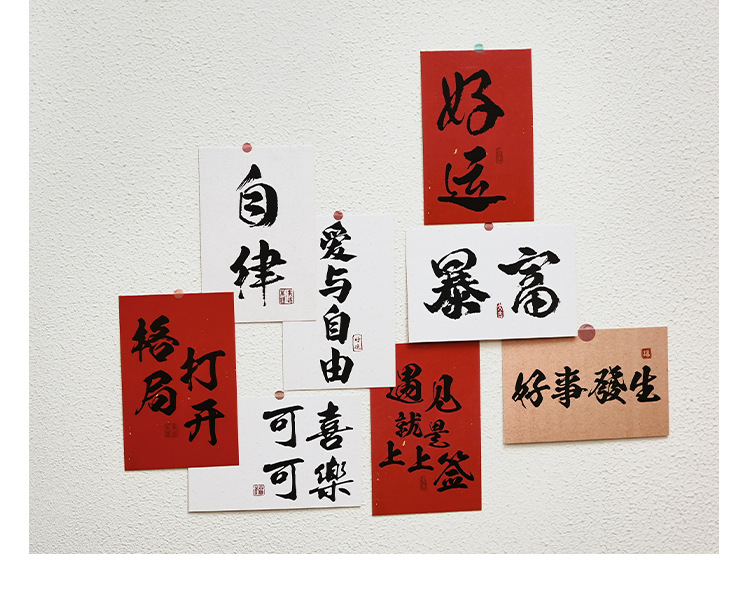 好运
自律
爱与自由
暴富
格局
打开
好事發生
遇见
就是
上上签
可喜
可樂